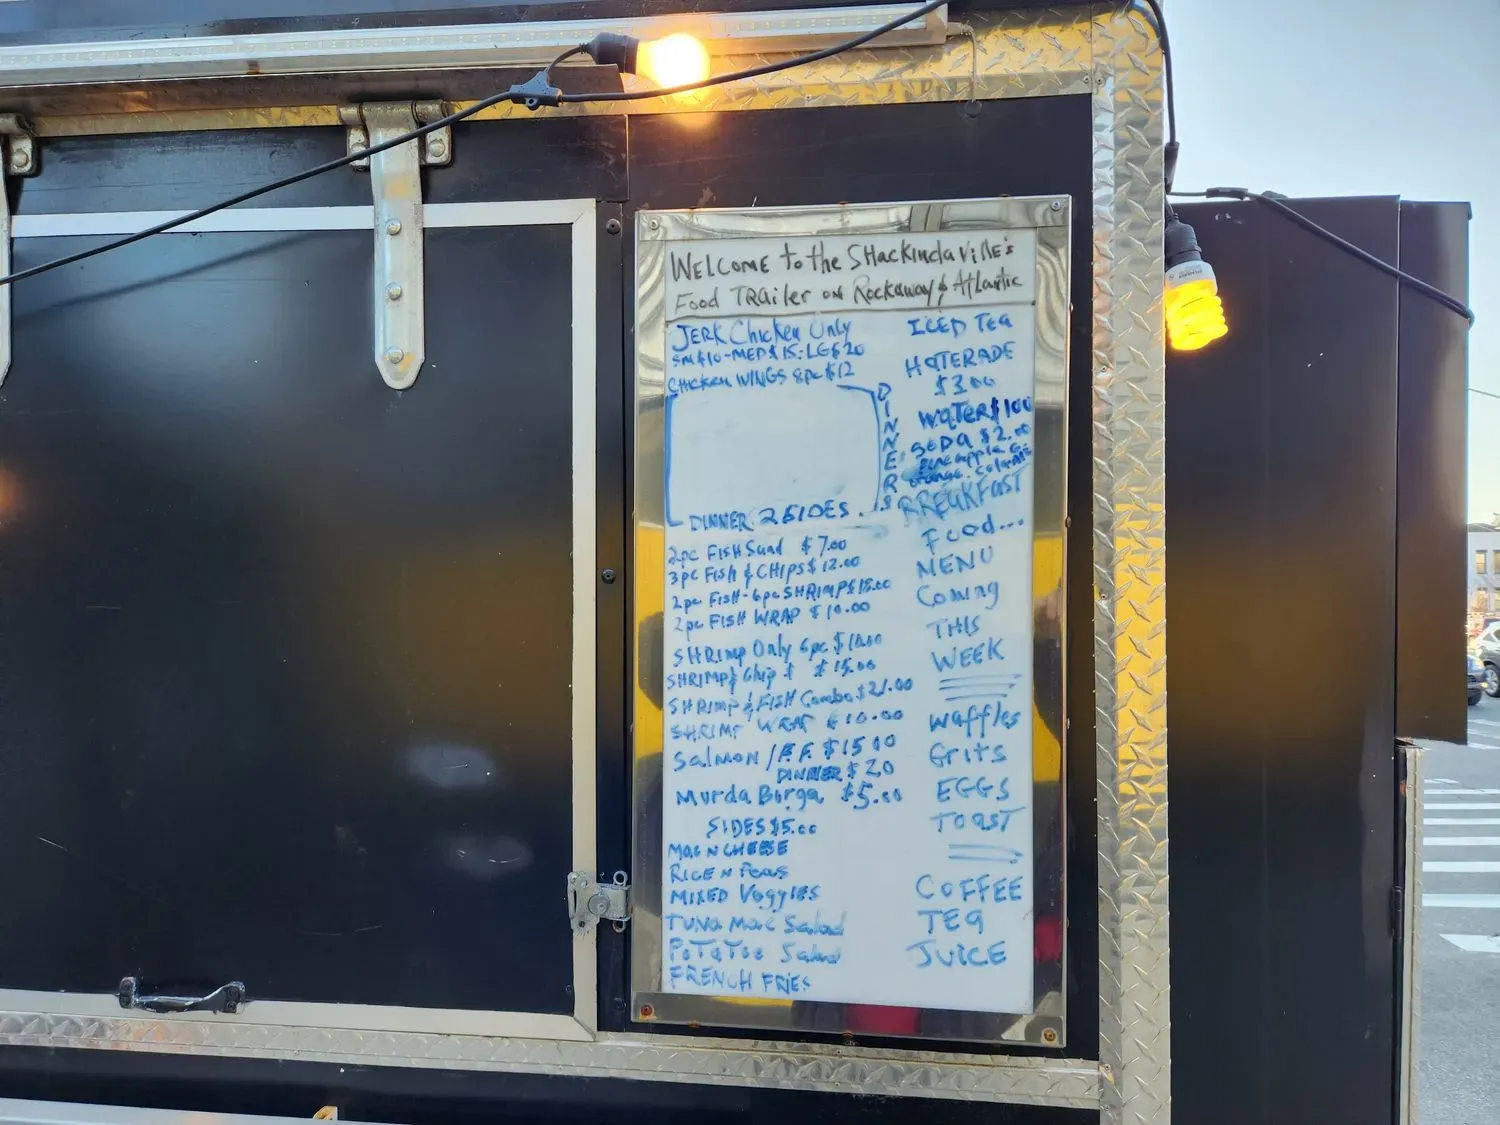 WELCOME to the SHackindaville's
Food TRailer on Rockaway & Atlantic
JERK Chicken Only
SM $10-MED $15-LG $20
CHicken WINGS 8pc $12
DINNERS
DINNER 2 SIDES.
2pc FISH Sand $7.00
3pc Fish & CHIPS $12.00
2pc FISH-6pc SHRIMP $15.00
2pc FISH WRAP $10.00
SHRImp Only 6pc $10.00
SHRIMP & Chip $ $15.00
SHRImp & FISH Combo $21.00
SHRIMP WRAP $10.00
SalmoN / F.F. $15 00
DINNER $20
Murda Borga $5.00
SIDES $5.00
Mac N CHEESE
RICE N Peas
MIXED Veggies
TUNa mac Salad
PoTaToe Salad
FRENCH FRIES
ICED Tea
HaTERADE
$3.00
WaTER $1 00
SODa $2.00
Pineapple G
orange. Cola
BREAKFAST
Food...
MENU
Coming
THIS
WEEK
waffles
Grits
EGGS
ToaST
COFFEE
TEa
JUICE